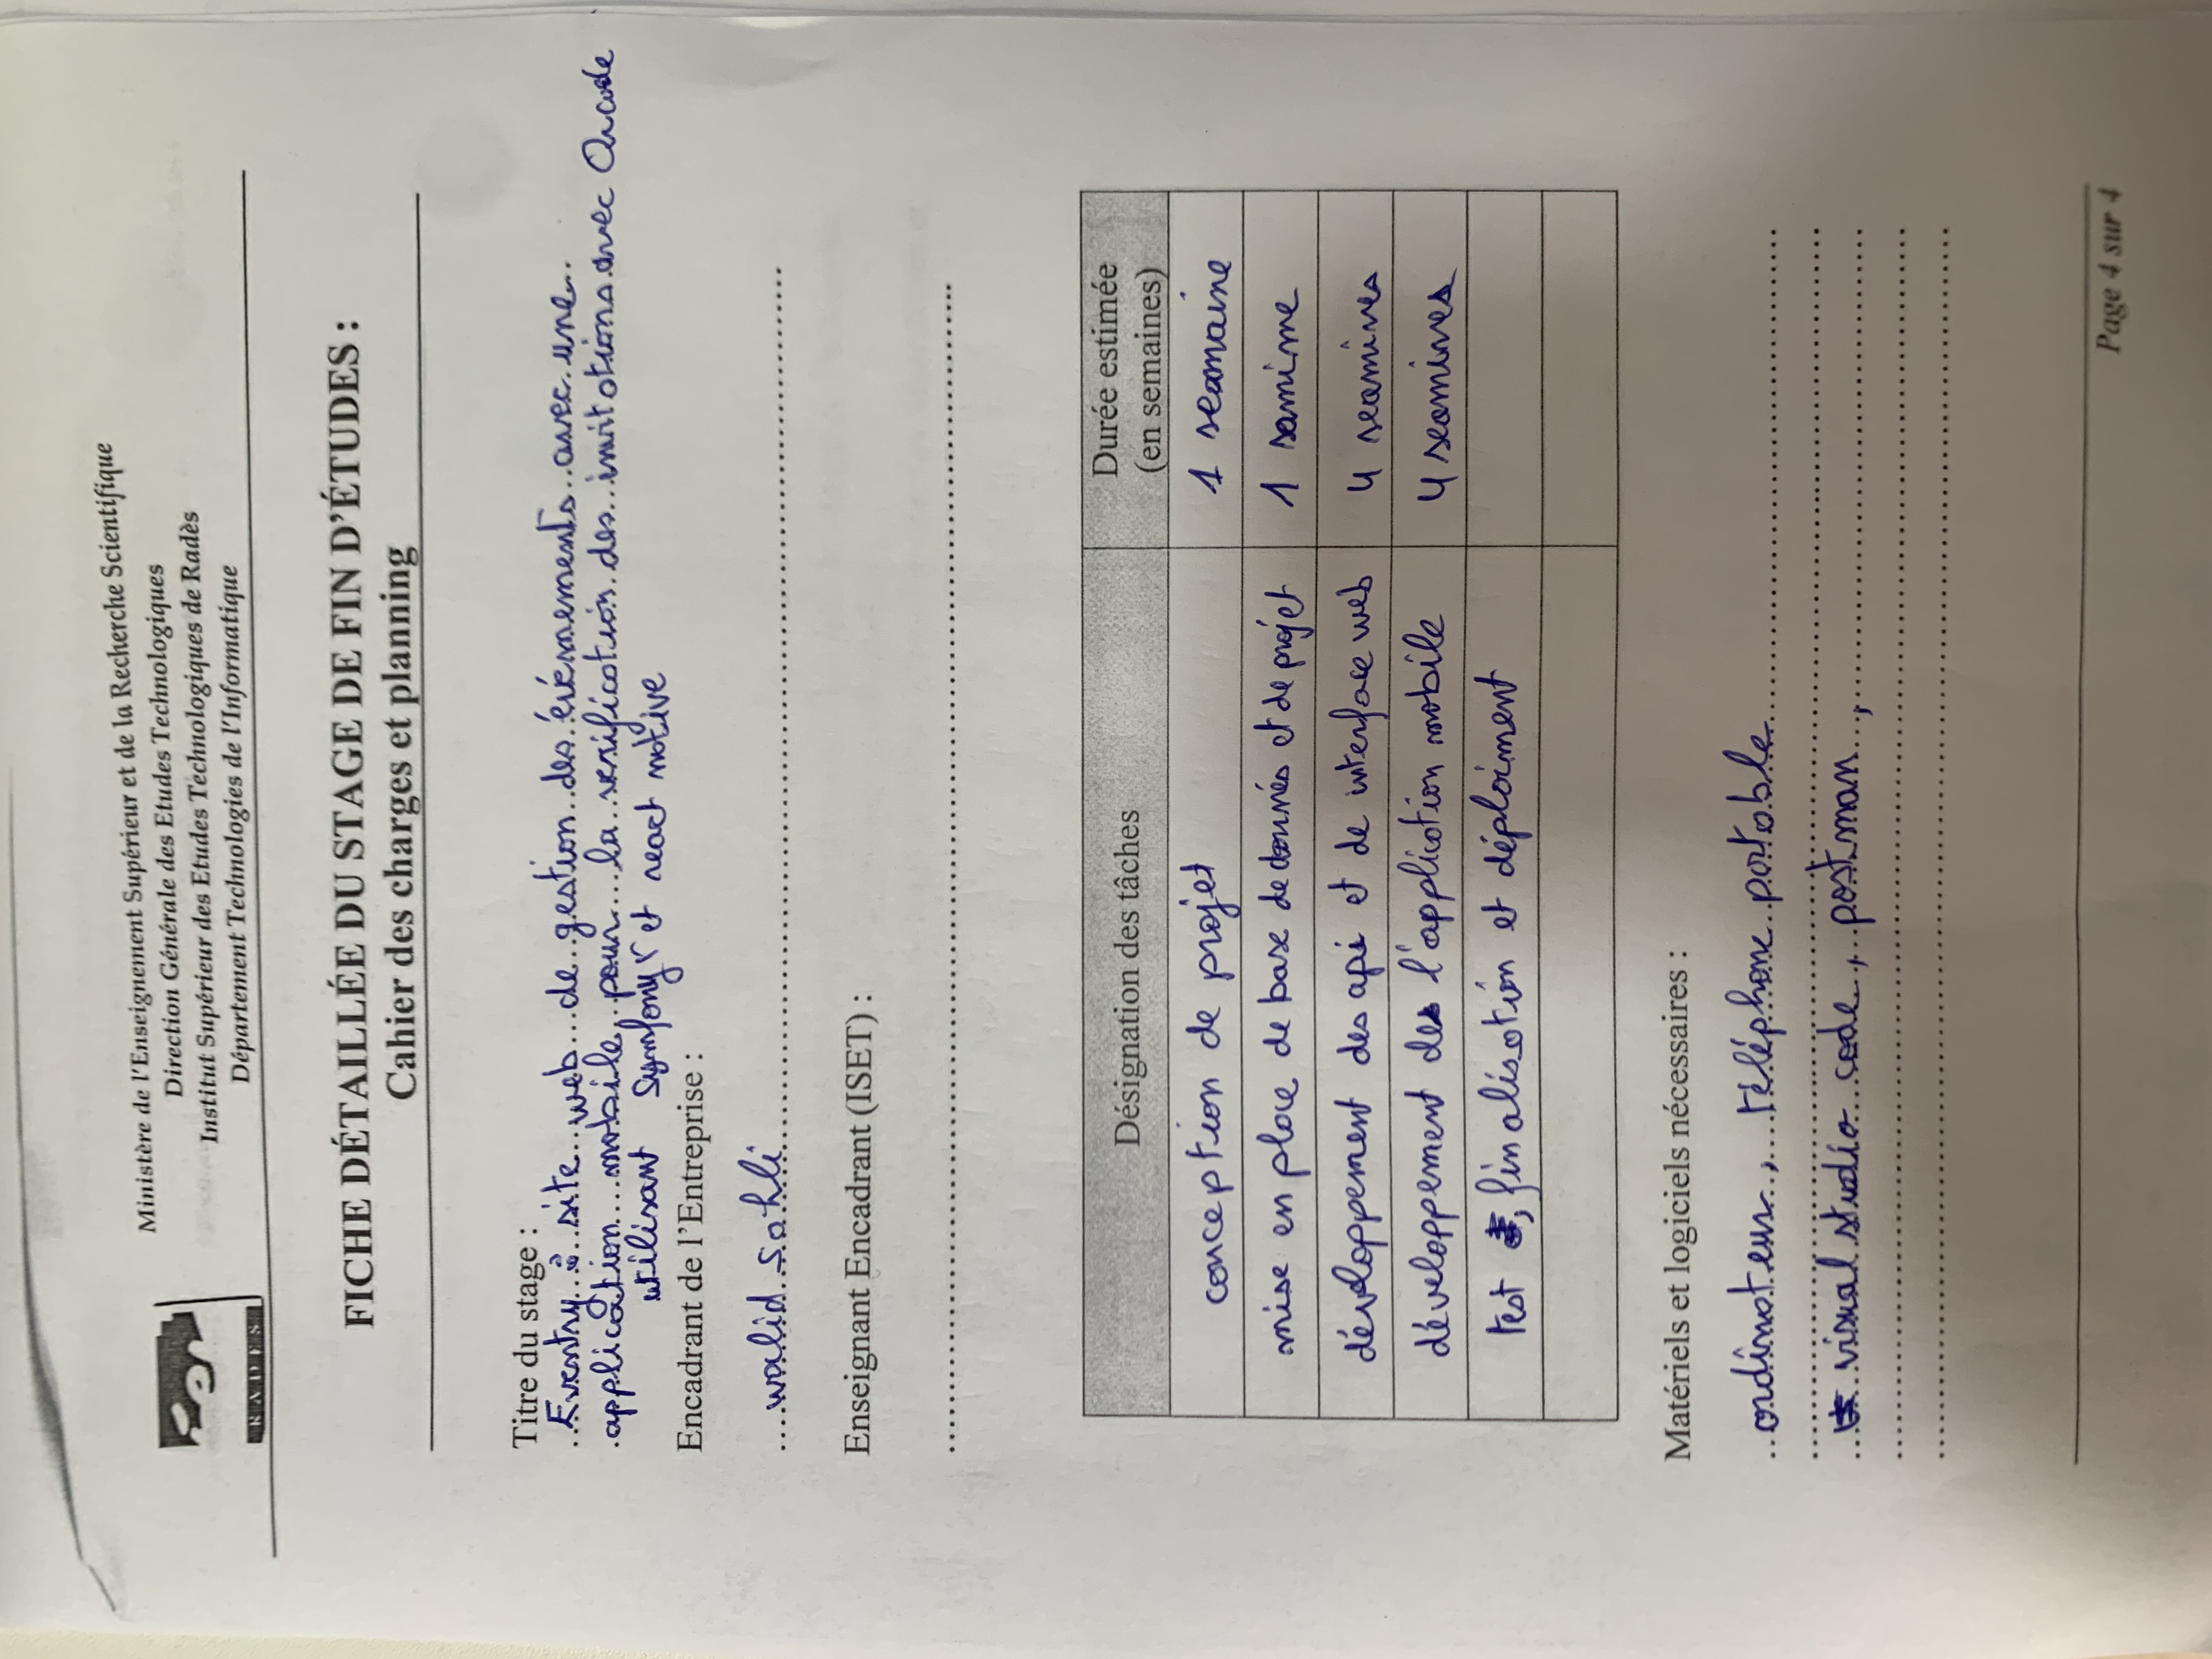 Ministère de l'Enseignement Supérieur et de la Recherche Scientifique
Direction Générale des Etudes Technologiques
Institut Supérieur des Etudes Technologiques de Radès
Département Technologies de l'Informatique
RADES
FICHE DÉTAILLÉE DU STAGE DE FIN D'ÉTUDES :
Cahier des charges et planning
Titre du stage :
Eventry : site web de gestion des événements avec une
application mobile pour la verification des invitations avec Qrcode
utilisant Symfony et react native
Encadrant de l'Entreprise :
walid sahli
Enseignant Encadrant (ISET) :
Désignation des tâches Durée estimée
(en semaines)
conception de projet 1 seamaine
mise en place de base de donnés et de projet 1 samine
développement des api et de interface web 4 seamines
développement des l'application mobile 4 seamines
test , finalisation et déploiment
Matériels et logiciels nécessaires :
ordinateur, téléphone portable
visual studio code, postman,
Page 4 sur 4